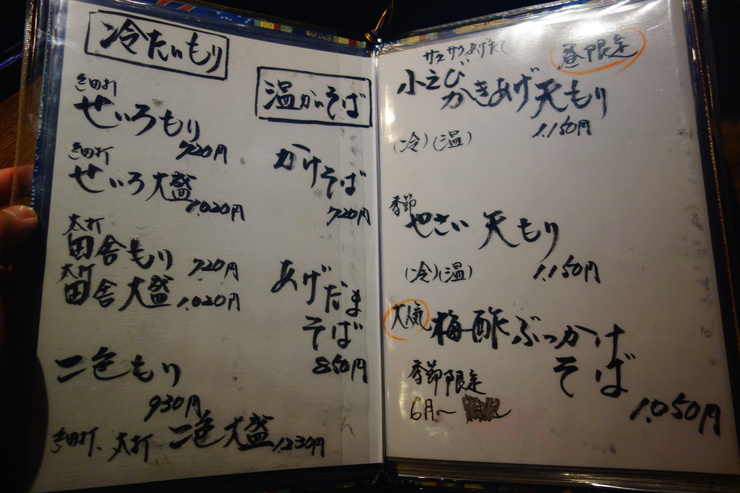 冷たいもり
細打
せいろもり
720円
細打
せいろ大盛
1,020円
太打
田舎もり
720円
太打
田舎大盛
1,020円
二色もり
930円
細打、太打 二色大盛 1,230円
温かいそば
かけそば
720円
あげだま
そば
850円
サクサクあげたて
昼限定
小えび
かきあげ天もり
(冷)(温)
1,150円
季節
やさい天もり
(冷)(温)
1,150円
人気
梅酢ぶっかけ
そば
季節限定
6月〜
1,050円